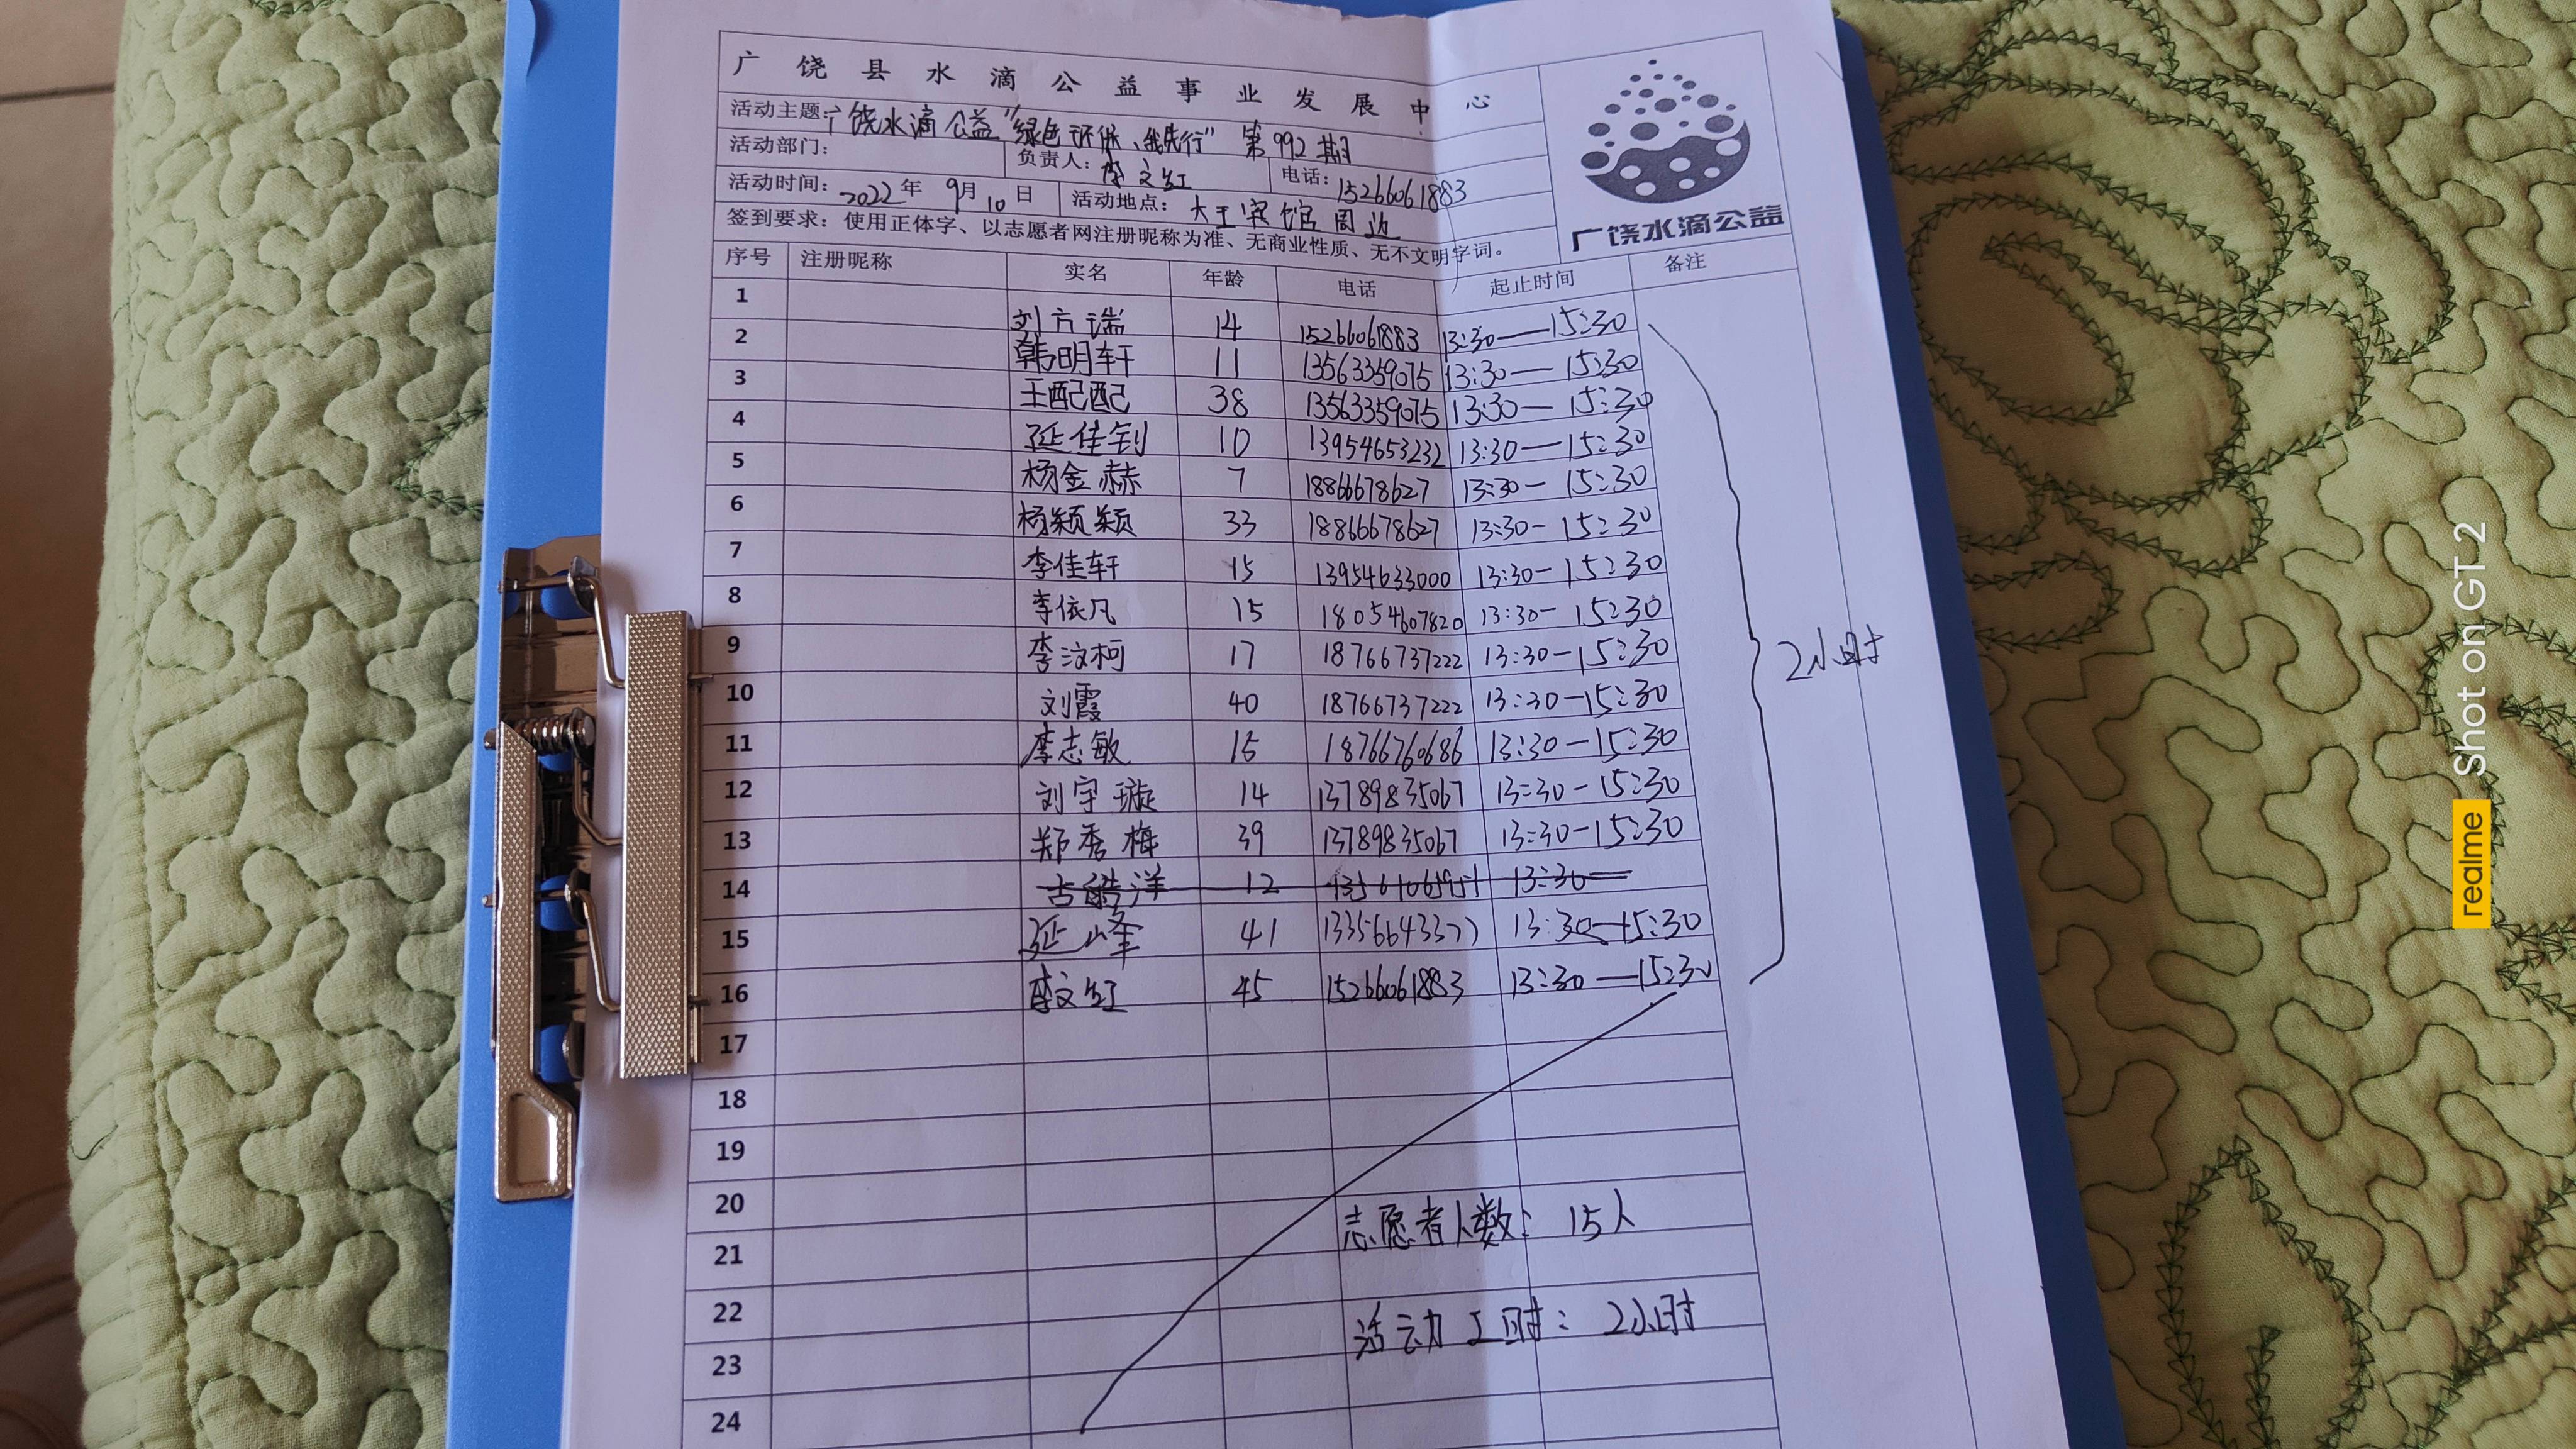 广饶县水滴公益事业发展中心
活动主题：广饶水滴公益"绿色环保、我先行" 第992期
活动部门： 负责人：李文红 电话：15266061883
活动时间：2022年 9月10日 活动地点：大王宾馆周边
签到要求：使用正体字、以志愿者网注册昵称为准、无商业性质、无不文明字词。
广饶水滴公益
序号 注册昵称 实名 年龄 电话 起止时间 备注
1 刘方瑞 14 15266061883 13:30—15:30
2 韩明轩 11 13563359075 13:30—15:30
3 王配配 38 13563359075 13:30—15:30
4 延佳钊 10 13954653232 13:30—15:30
5 杨金赫 7 18866678627 13:30-15:30
6 杨颖颖 33 18866678627 13:30-15:30
7 李佳轩 15 13954633000 13:30-15:30
8 李依凡 15 18054607820 13:30-15:30
9 李汶柯 17 18766737222 13:30-15:30
10 刘霞 40 18766737222 13:30-15:30
11 李志敏 15 18766760686 13:30-15:30
12 刘宇璇 14 13789835067 13:30-15:30
13 郑秀梅 39 13789835067 13:30-15:30
14 12 13:30—
15 延峰 41 13356643377 13:30-15:30
16 李文红 45 15266061883 13:30—15:30
2小时
17
18
19
20
志愿者人数：15人
21
22
活动工时：2小时
23
24
realme Shot on GT 2